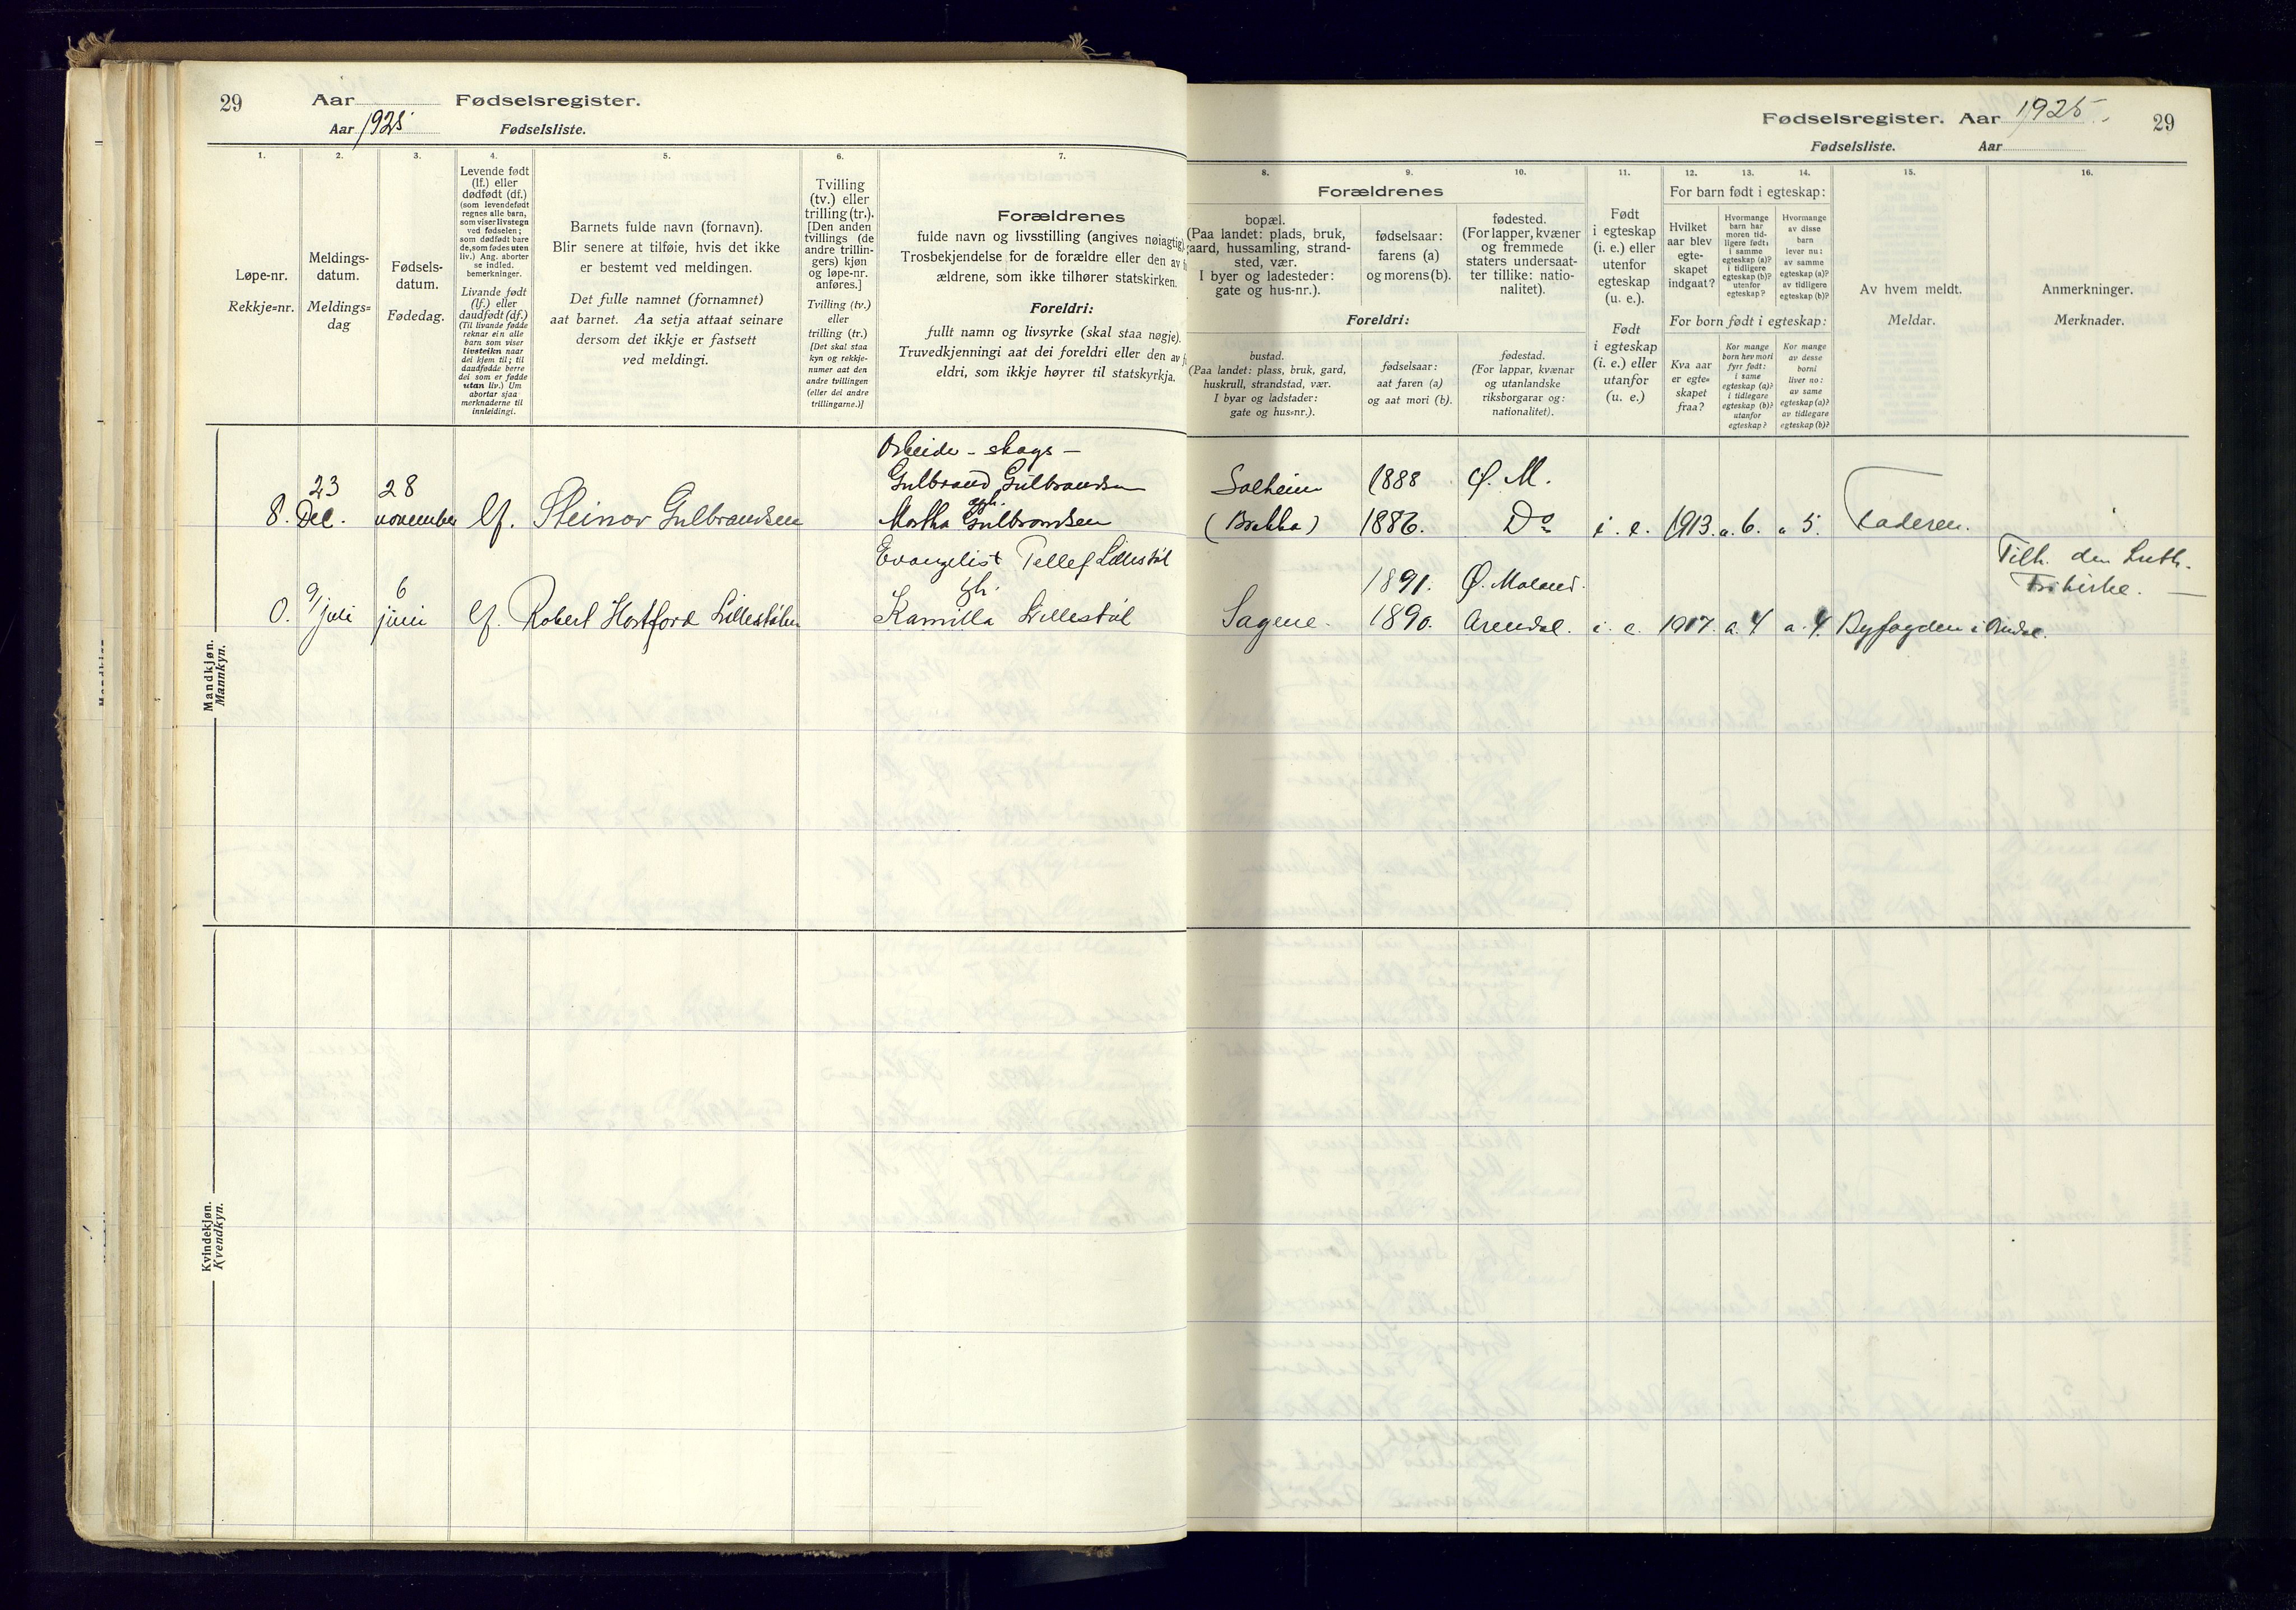 29
Aar Fødselsregister.
Aar 1925 Fødselsliste.
1.
2.
3.
4.
5.
6.
7.
Løpe-nr.
Rekkje=nr.
Meldings-
datum.
Meldings=
dag
Fødsels-
datum.
Fødedag.
Levende født
(lf.) eller
dødfødt (df.)
(som levendefødt
regnes alle barn,
som viser livstegn
ved fødselen;
som dødfødt bare
de, som fødes uten
liv.) Ang. aborter
se indled.
bemerkninger.
Livande født
(lf.) eller
daudfødt (df.)
(Til livande fødde
reknar ein alle
barn som viser
livsteikn naar
dei kjem til; til
daudfødde berre
dei som er fødde
utan liv.) Um
abortar sjaa
merknaderne til
innleidingi.
Barnets fulde navn (fornavn).
Blir senere at tilføie, hvis det ikke
er bestemt ved meldingen.
Det fulle namnet (fornamnet)
aat barnet. Aa setja attaat seinare
dersom det ikkje er fastsett
ved meldingi.
Tvilling
(tv.) eller
trilling (tr.).
[Den anden
tvillings (de
andre trillin-
gers) kjøn
og løpe-nr.
anføres.]
Tvilling (tv.)
eller
trilling (tr.)
[Det skal staa
kyn og rekkje-
numer aat den
andre tvillingen
(eller dei andre
trillingarne.)]
Forældrenes
fulde navn og livsstilling (angives nøiagtig).
Trosbekjendelse for de forældre eller den av f
ældrene, som ikke tilhører statskirken.
Foreldri:
fullt namn og livsyrke (skal staa nøgje).
Truvedkjenningi aat dei foreldri eller den av f
eldri, som ikkje høyrer til statskyrkja.
Mandkjøn.
Mannkyn.
Arbeider - skogs -
23 28 Gulbrand Gulbrandsen
8. Dec. november lf. Steinar Gulbrandsen Martha Gulbrandsen
Evangelist Tellef Lillestøl
9/ 6
0. juli juni lf. Robert Hartford Lillestølen Kamilla Lillestøl
Kvindekjøn.
Kvendkyn.
Fødselsregister. Aar 1925. 29
Fødselsliste. Aar
8.
9.
10.
11.
12.
13.
14.
15.
16.
Forældrenes
bopæl.
(Paa landet: plads, bruk,
gaard, hussamling, strand-
sted, vær.
I byer og ladesteder:
gate og hus-nr.).
fødselsaar:
farens (a)
og morens (b).
fødested.
(For lapper, kvæner
og fremmede
staters undersaat-
ter tillike: natio-
nalitet).
Foreldri:
bustad.
(Paa landet: plass, bruk, gard,
huskrull, strandstad, vær.
I byar og ladstader:
gate og hus=nr.).
fødselsaar:
aat faren (a)
og aat mori (b).
fødestad.
(For lappar, kvænar
og utanlandske
riksborgarar og:
nationalitet).
Født
i egteskap
(i. e.) eller
utenfor
egteskap
(u. e.).
Født
i egteskap
(i. e.) eller
utanfor
(u. e.)
For barn født i egteskap:
Hvilket
aar blev
egte-
skapet
indgaat?
Hvormange
barn har
moren tid-
ligere født:
i samme
egteskap (a)?
i tidligere
egteskap (b)?
utenfor
egteskap?
Hvormange
av disse
barn
lever nu:
av samme
egteskap (a)?
av tidligere
egteskap (b)?
For born født i egteskap:
Kva aar
er egte=
skapet
fraa?
Kor mange
born hev mori
fyrr født:
i same
egteskap (a)?
i tidlegare
egteskap (b)?
utanfor
egteskap?
Kor mange
av desse
borni
liver no:
av same
egteskap (a)?
av tidlegare
egteskap (b)?
Av hvem meldt.
Meldar.
Anmerkninger.
Merknader.
Solheim 1888 Ø. M.
(Brekka) 1886. Do i. e. 1913. a. 6. a 5. Faderen.
1891. Ø. Moland. Tilh. den Luth.
Frikirke. —
Sagene. 1890. Arendal. i. e. 1917. a. 4 a. 4. Byfogden i Arendal.